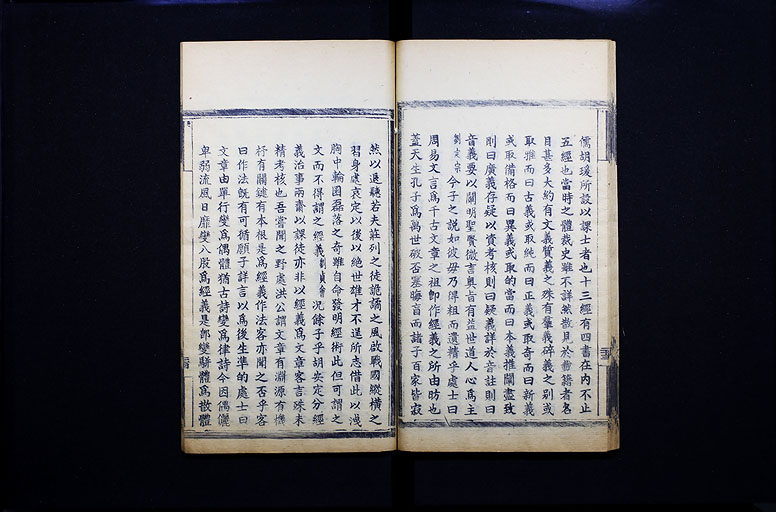 儒胡瑗所設以課士者也十三經有四書在內不止
五經也當時之體裁史雖不詳然散見於書籍者名
目甚多大約有文義質義之殊有羣義碎義之別或
取推而曰古義或取純而曰正義或取奇而曰新義
或取備格而曰異義或取的當而曰本義推闡盡致
則曰廣義存疑以資考核則曰疑義詳於音註則曰
音義要以闡明聖賢微言奧旨有益世道人心爲主
劉定宗 今子之說如彼毋乃得粗而遺精乎處士曰
周易文言爲千古文章之祖卽作經義之所由昉也
蓋天生孔子爲萬世破否塞晦盲而諸子百家皆寂
然以退聽若夫莊列之徒詭譎之風啟戰國縱橫之
習身處哀定以後以絶世雄才不逞所志借此以洩
胸中輪囷磊落之奇雖自命發明經術此但可謂之
文而不得謂之經義 況餘子乎胡安定分經
義治事兩齋以課徒亦非以經義爲文章客言殊未
精考核也吾嘗聞之野處洪公謂文章有淵源有機
杼有關鍵有本根是爲經義作法客亦聞之否乎客
曰作法旣有可循願子詳言以爲後生準的處士曰
文章由單行變爲偶體猶古詩變爲律詩今因偶儷
卑弱流風日靡變八股爲經義是郎變駢體爲散體